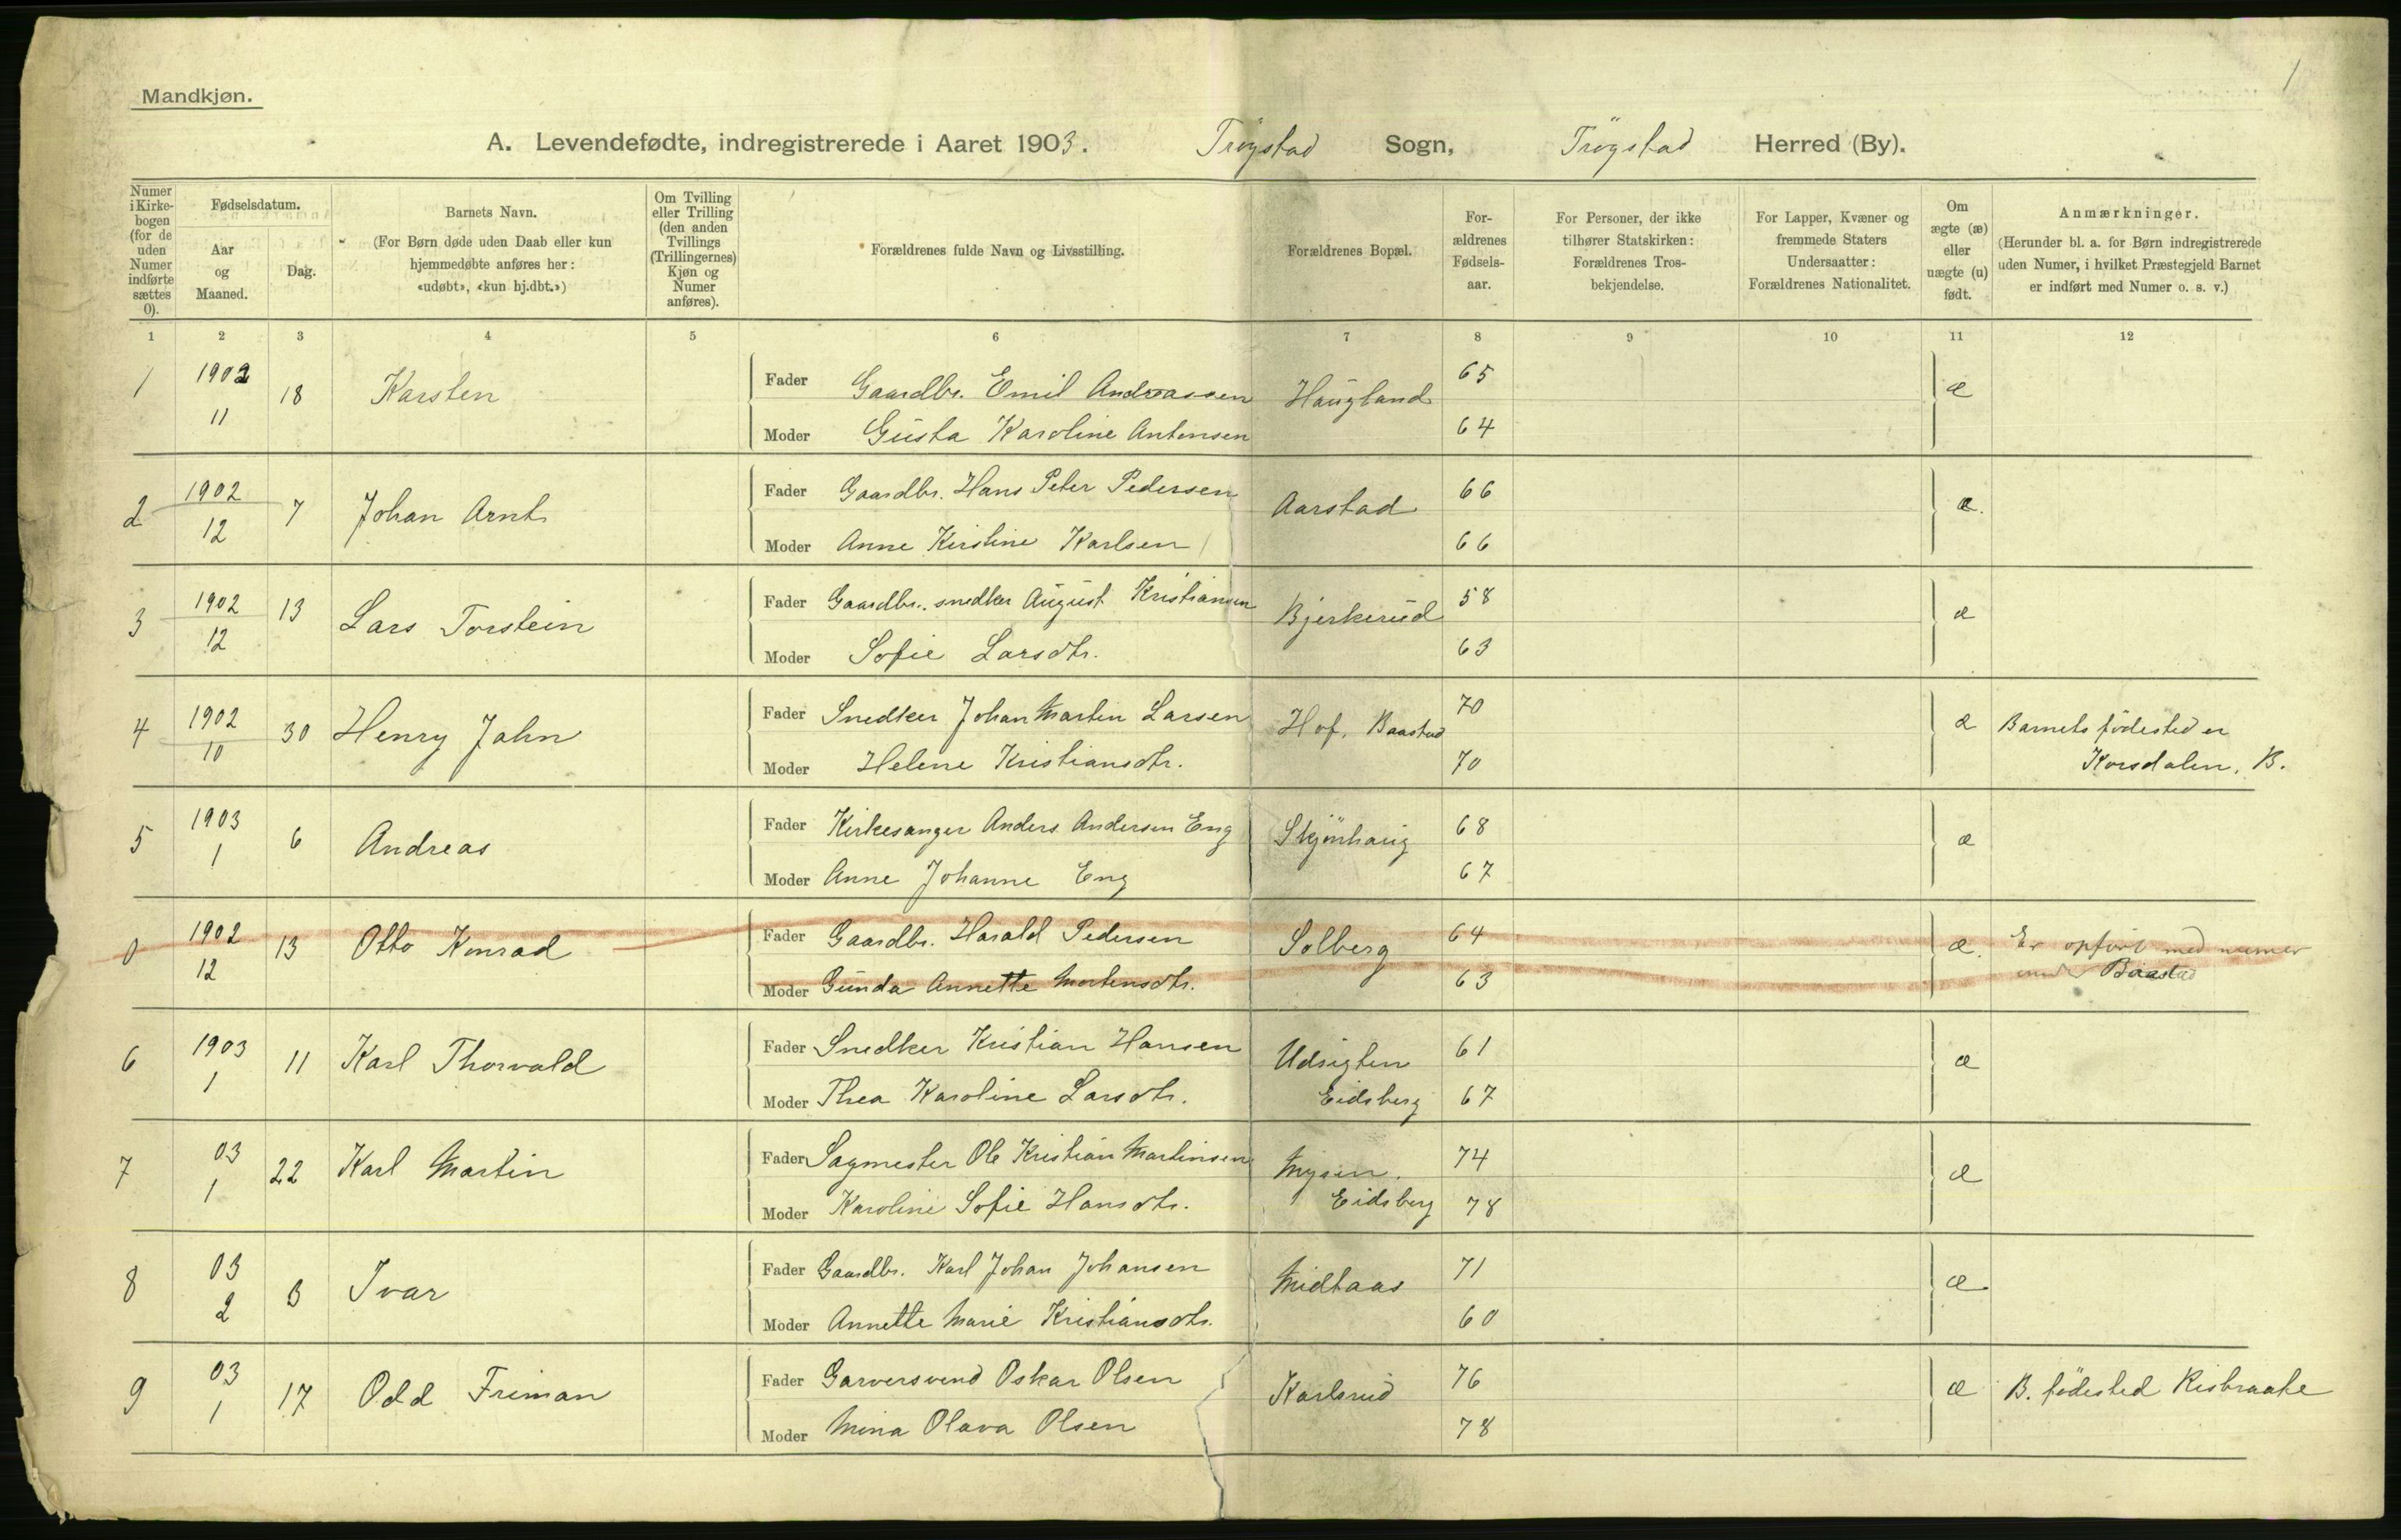 1
Mandkjøn.
A. Levendefødte, indregistrerede i Aaret 1903. Trøgstad Sogn, Trøgstad Herred (By).
Numer i Kirkebogen (for de uden Numer indførte sættes 0).
Fødselsdatum.
Aar og Maaned.
Dag.
Barnets Navn.
(For Børn døde uden Daab eller kun hjemmedøbte anføres her: «udøbt», «kun hj.dbt.»)
Om Tvilling eller Trilling (den anden Tvillings (Trillingernes) Kjøn og Numer anføres).
Forældrenes fulde Navn og Livsstilling.
Forældrenes Bopæl.
Forældrenes Fødselsaar.
For Personer, der ikke tilhører Statskirken: Forældrenes Trosbekjendelse.
For Lapper, Kvæner og fremmede Staters Undersaatter: Forældrenes Nationalitet.
Om ægte (æ) eller uægte (u) født.
Anmærkninger.
(Herunder bl. a. for Børn indregistrerede uden Numer, i hvilket Præstegjeld Barnet er indført med Numer o. s. v.)
1 2 3 4 5 6 7 8 9 10 11 12
1 1902 11 18 Karsten Fader Gaardbr. Emil Andreassen Haugland 65 æ
Moder Gusta Karoline Antonsen 64
2 1902 12 7 Johan Arnt Fader Gaardbr. Hans Peter Pedersen Aarstad 66 æ.
Moder Anne Kirstine Karlsen 66
3 1902 12 13 Lars Torstein Fader Gaardbr. snedker August Kristiansen Bjerkerud 58 æ
Moder Sofie Larsdtr. 63
4 1902 10 30 Henry Jahn Fader Snedker Johan Martin Larsen Hof, Baastad 70 æ Barnets fødested er
Moder Helene Kristiansdtr. 70 Korsdalen, B.
5 1903 1 6 Andreas Fader Kirkesanger Anders Andersen Eng Skjønhaug 68 æ
Moder Anne Johanne Eng 67
0 1902 12 13 Otto Konrad Fader Gaardbr. Harald Pedersen Solberg 64 æ. Er opført med numer
Moder Gunda Annette Mortensdtr. 63 under Baastad
6 1903 1 11 Karl Thorvald Fader Snedker Kristian Hansen Udsigten 61 æ
Moder Thea Karoline Larsdtr. Eidsberg 67
7 03 1 22 Karl Martin Fader Sagmester Ole Kristian Martinsen Mysen. 74 æ
Moder Karoline Sofie Hansdtr. Eidsberg 78
8 03 2 3 Ivar Fader Gaardbr. Karl Johan Johansen Midtaas 71 æ
Moder Annette Marie Kristiansdtr. 60
9 03 1 17 Odd Friman Fader Garversvend Oskar Olsen Karlsrud 76 æ B. fødested Risbraate
Moder Mina Olava Olsen 78